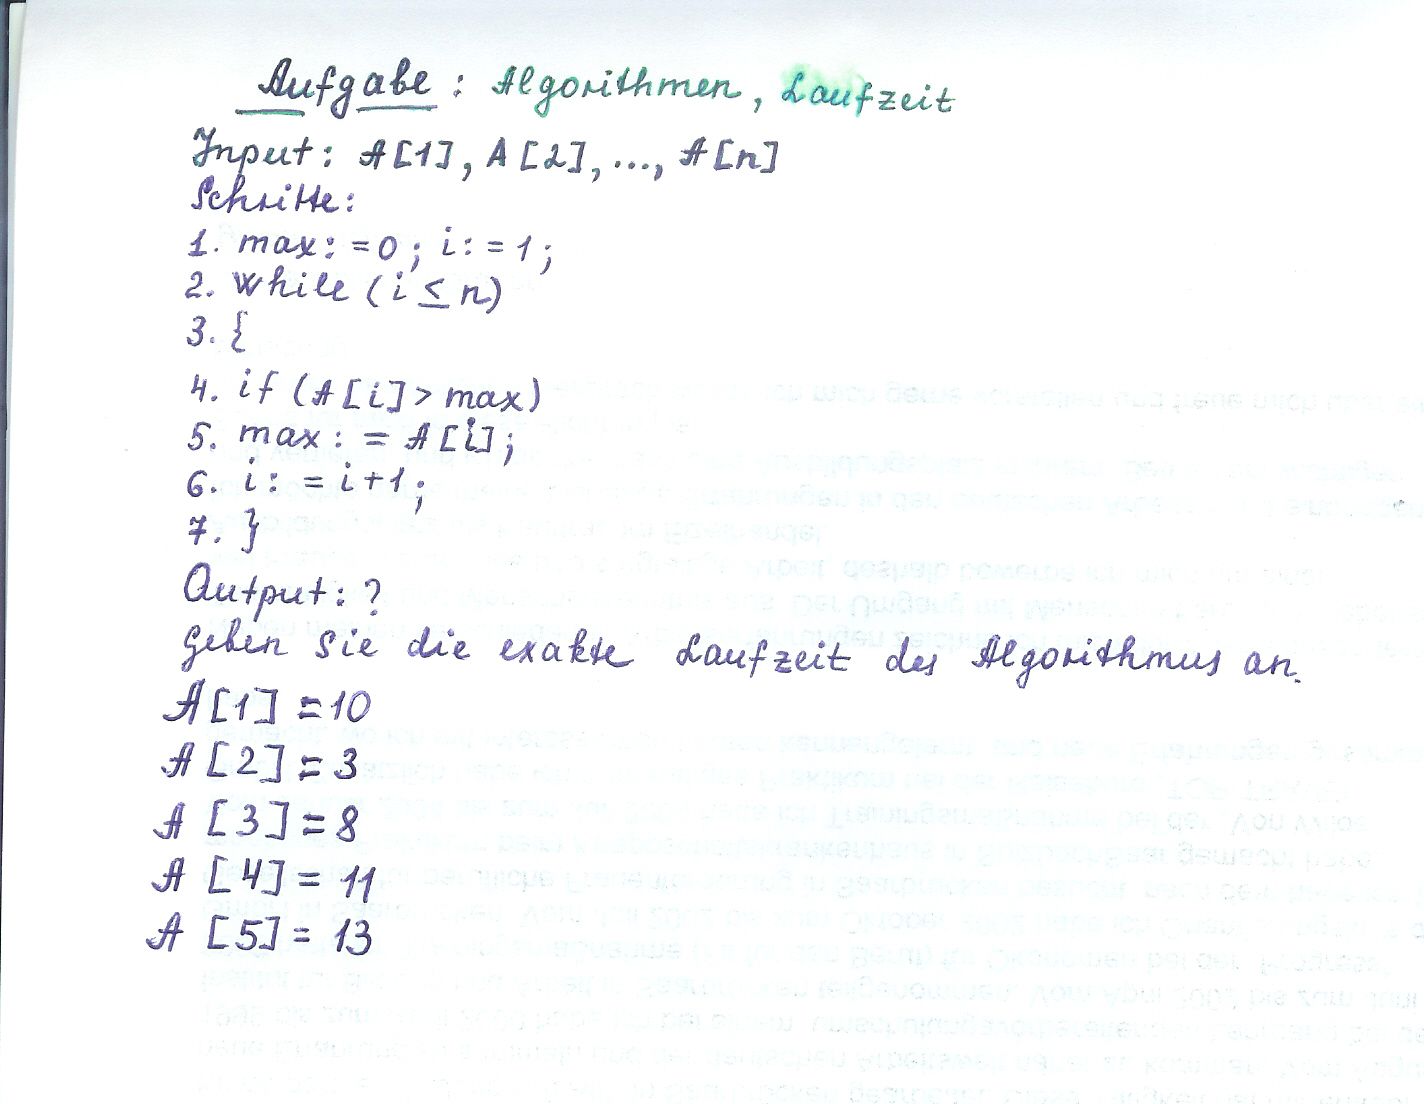 Aufgabe: Algorithmen, Laufzeit
Input: A[1], A[2], ..., A[n]
Schritte:
1. max:=0; i:=1;
2. While (i ≤ n)
3. {
4. if (A[i] > max)
5. max: = A[i];
6. i: = i+1;
7. }
Output: ?
Geben Sie die exakte Laufzeit des Algorithmus an.
A[1] = 10
A[2] = 3
A[3] = 8
A[4] = 11
A[5] = 13